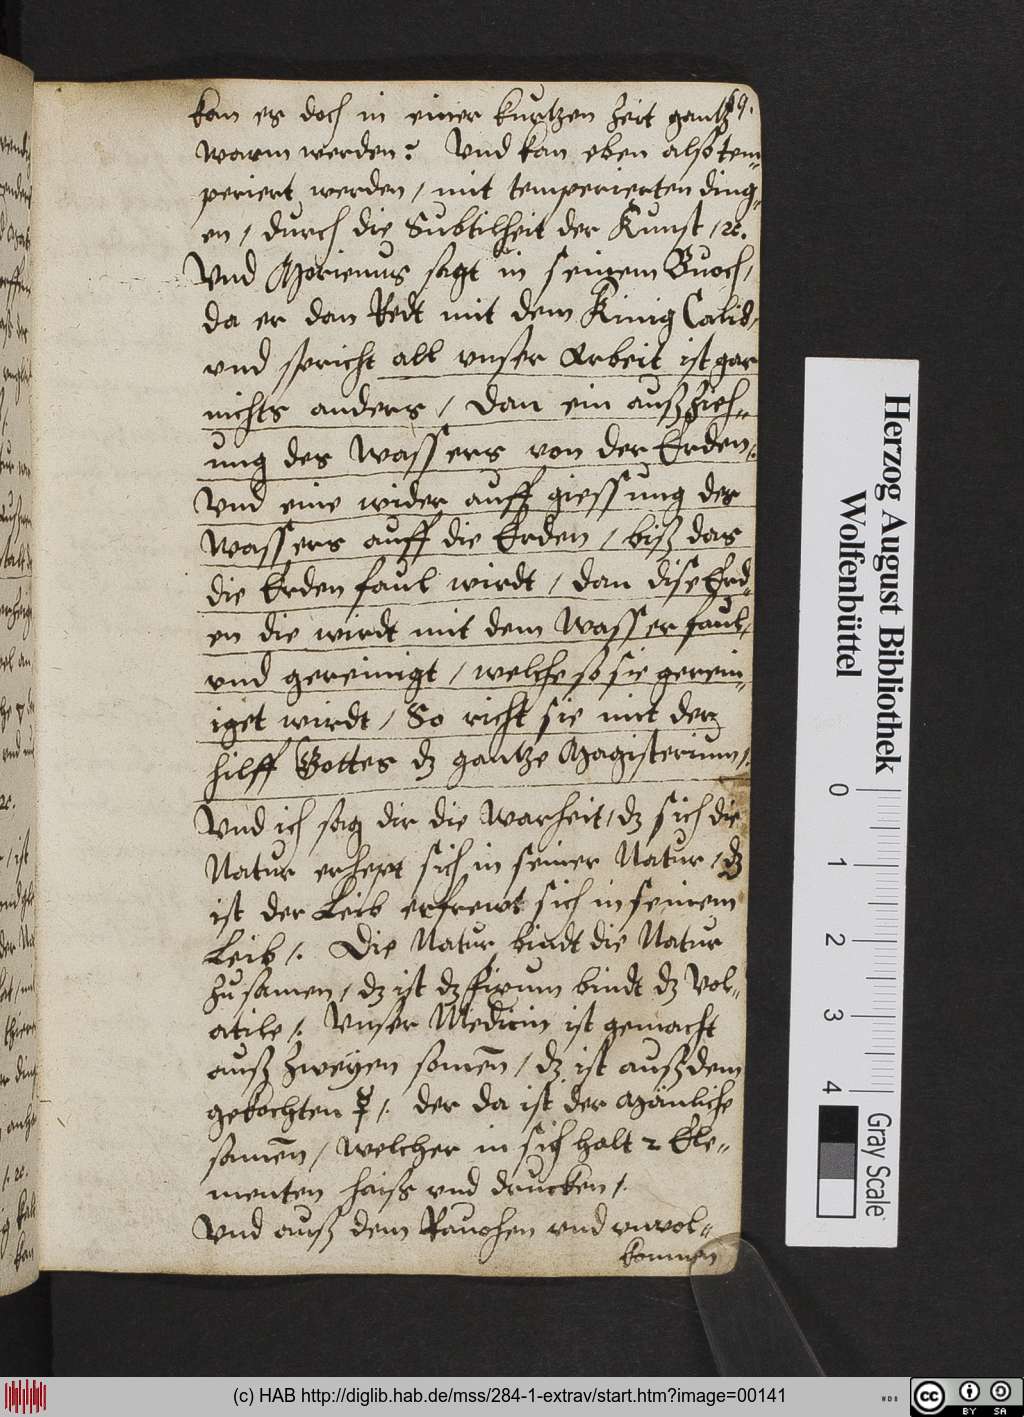 69.
kan es doch in einer kurtzen Zeit gantz
warm werden? Vnd kan eben also tem-
periert werden, / mit temperierten ding-
en / durch die Subtilheit der Kunst / ꝛc.
Vnd Morienus sagt in seinem Buoch /
da er dan Redt mit dem Kinig Calid /
vnd spricht all vnser Arbeit ist gar
nichts anders / Dan ein außzieh-
ung des Wassers von der Erden /.
Vnd eine wider auffgiessung des
Wassers auff die Erden / biß das
die Erden faul wirdt / dan dise Erd-
en die wirdt mit dem Wasser faul /
vnd gereinigt / welche so sie gerein-
iget wirdt / So richt sie mit der
hilff Gottes dz gantze Magisterium /.
Vnd ich sag dir die Warheit / dz sich die
Natur erhept sich in seiner Natur / dz
ist der Leib erfrewt sich in seinem
Leib /. Die Natur bindt die Natur
zusamen / dz ist dz fixum bindt dz Vol-
atile /. Vnser Medicin ist gemacht
auß Zweyen somen̄ / dz ist auß dem
gekochten ☿ /. der da ist der Mänliche
samen̄ / Welcher in sich halt 2 Ele-
menten haiss vnd drucken /.
Vnd auß dem Rauohen vnd vnvol-
kommen
Herzog August Bibliothek
Wolfenbüttel
0
1
2
3
4
Gray Scale
(c) HAB http://diglib.hab.de/mss/284-1-extrav/start.htm?image=00141
WDB
cc
BY SA